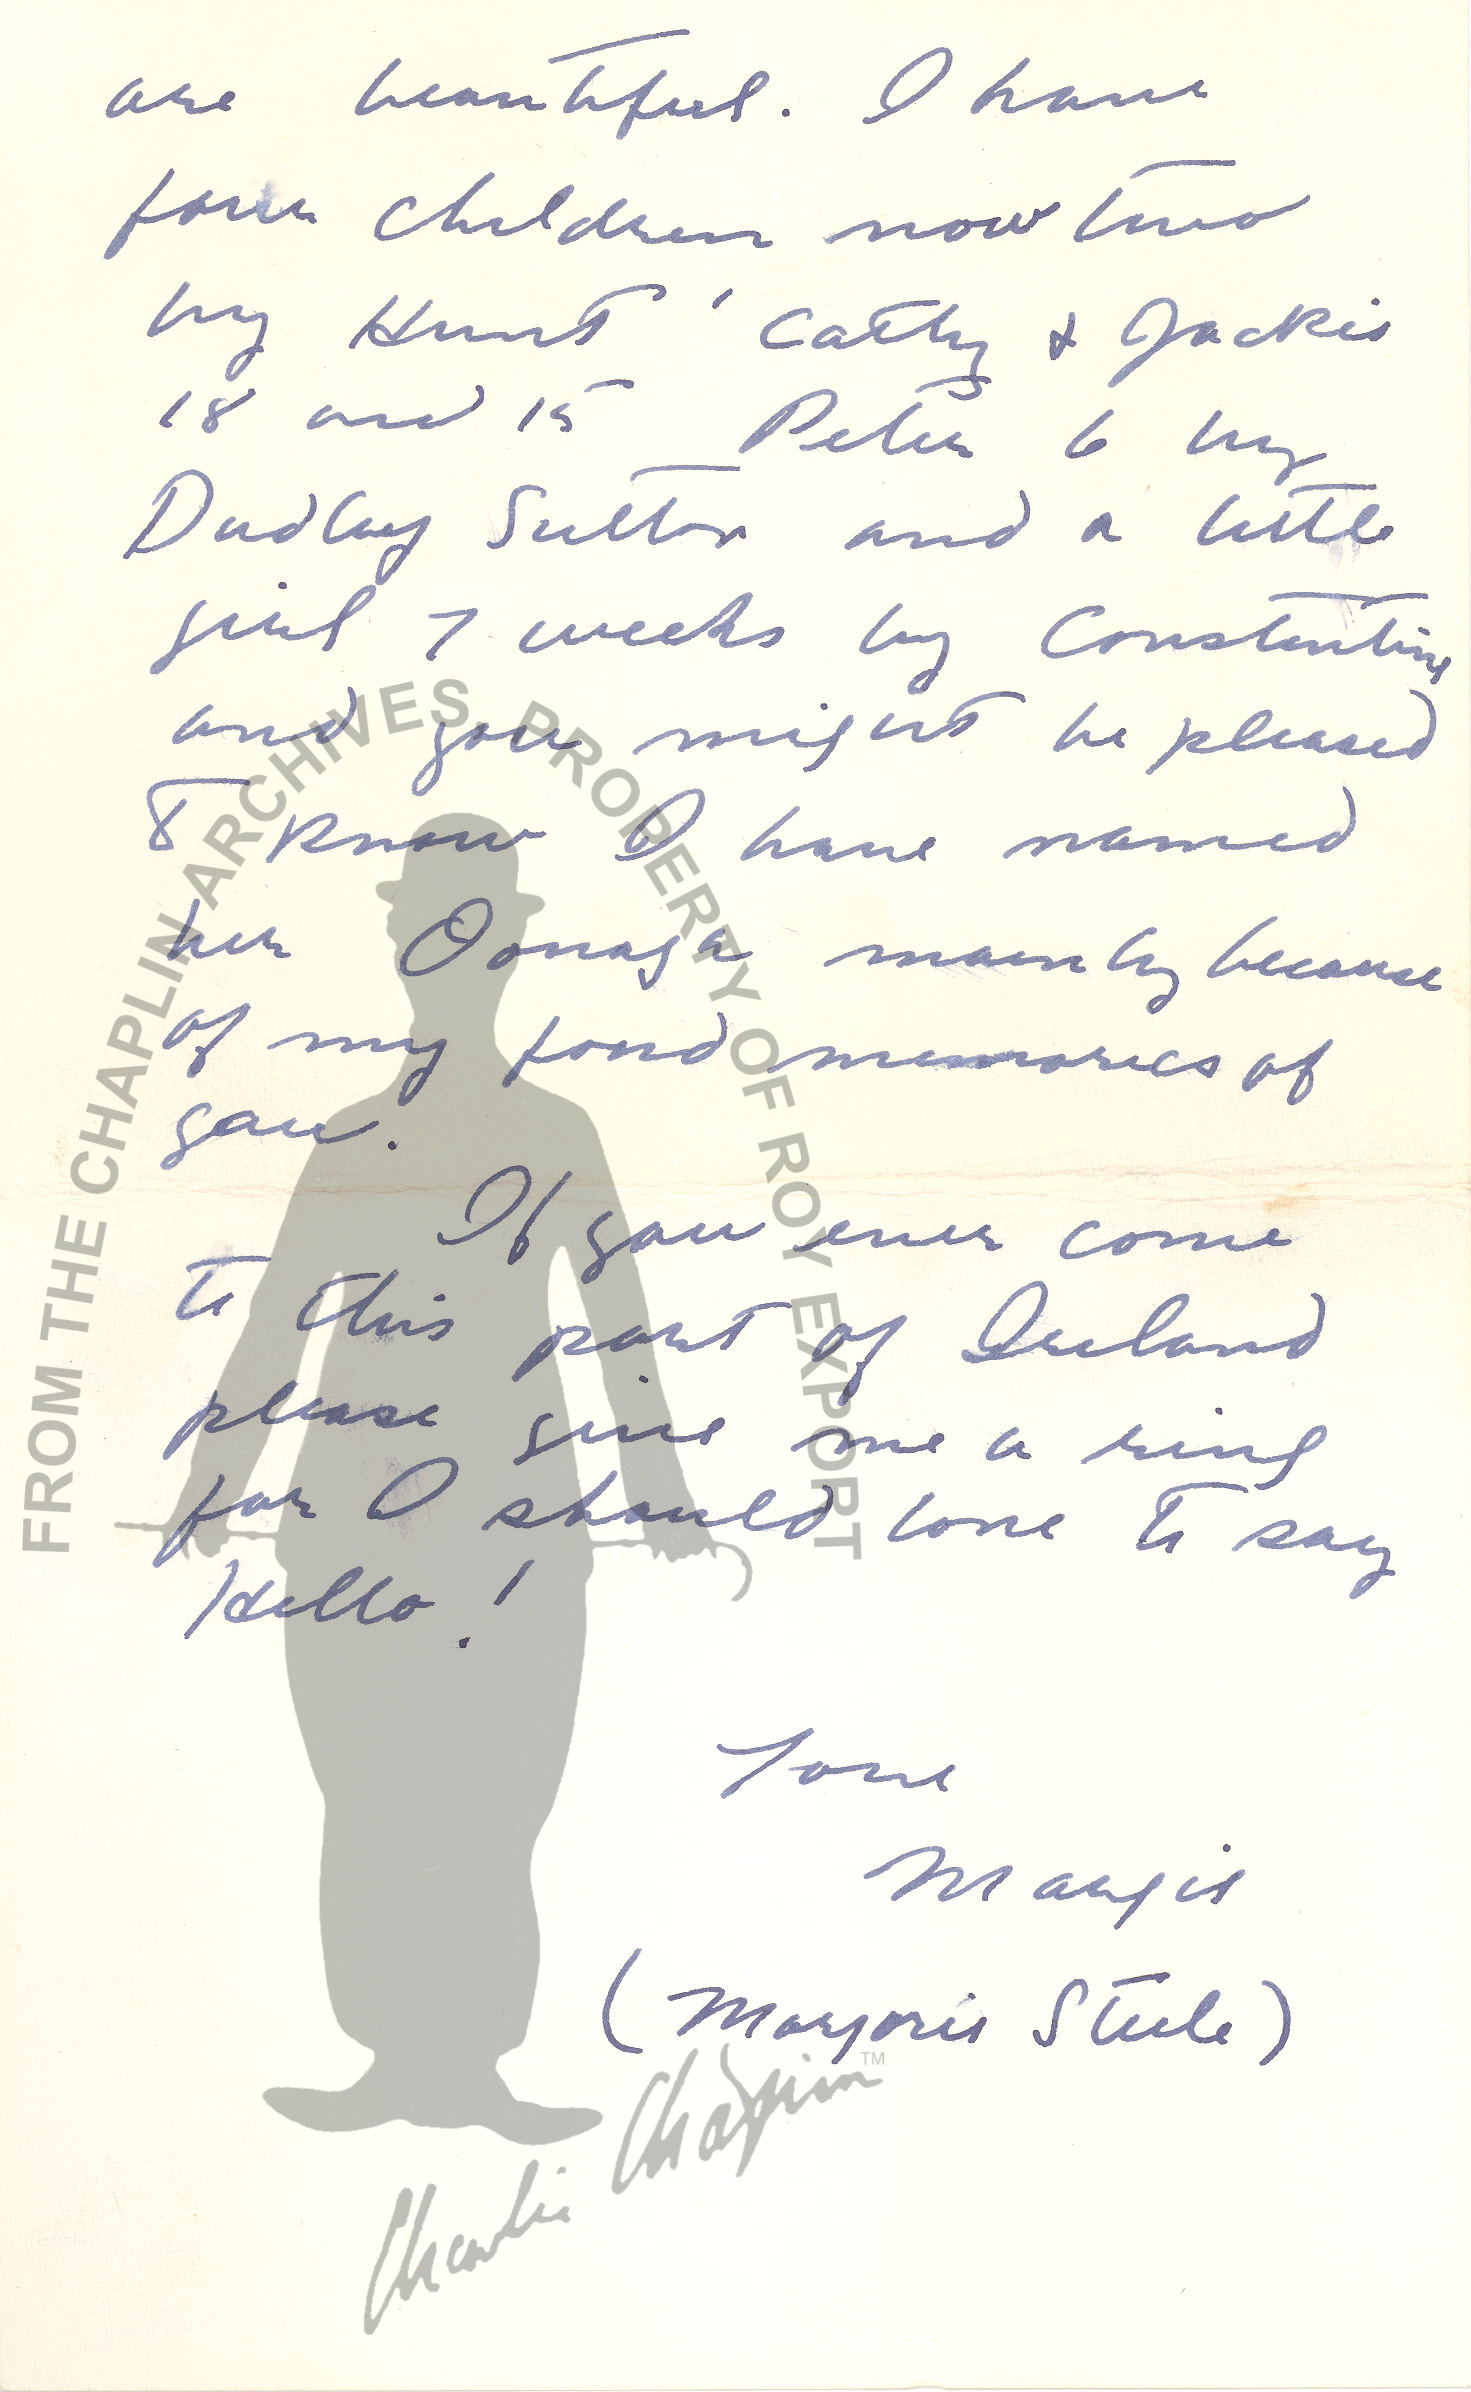 are beautiful. I have
four children now two
by Hunt, Cathy & Jackie
18 and 15 Peter 6 by
Dudley Sutton and a little
girl 7 weeks by Constantine
and you might be pleased
to know I have named
her Oonagh mainly because
of my fond memories of
you.
If you ever come
to this part of Ireland
please give me a ring
for I should love to say
Hello!
Love
Margie
(Marjorie Steele)
FROM THE CHAPLIN ARCHIVES, PROPERTY OF ROY EXPORT
Charlie Chaplin™